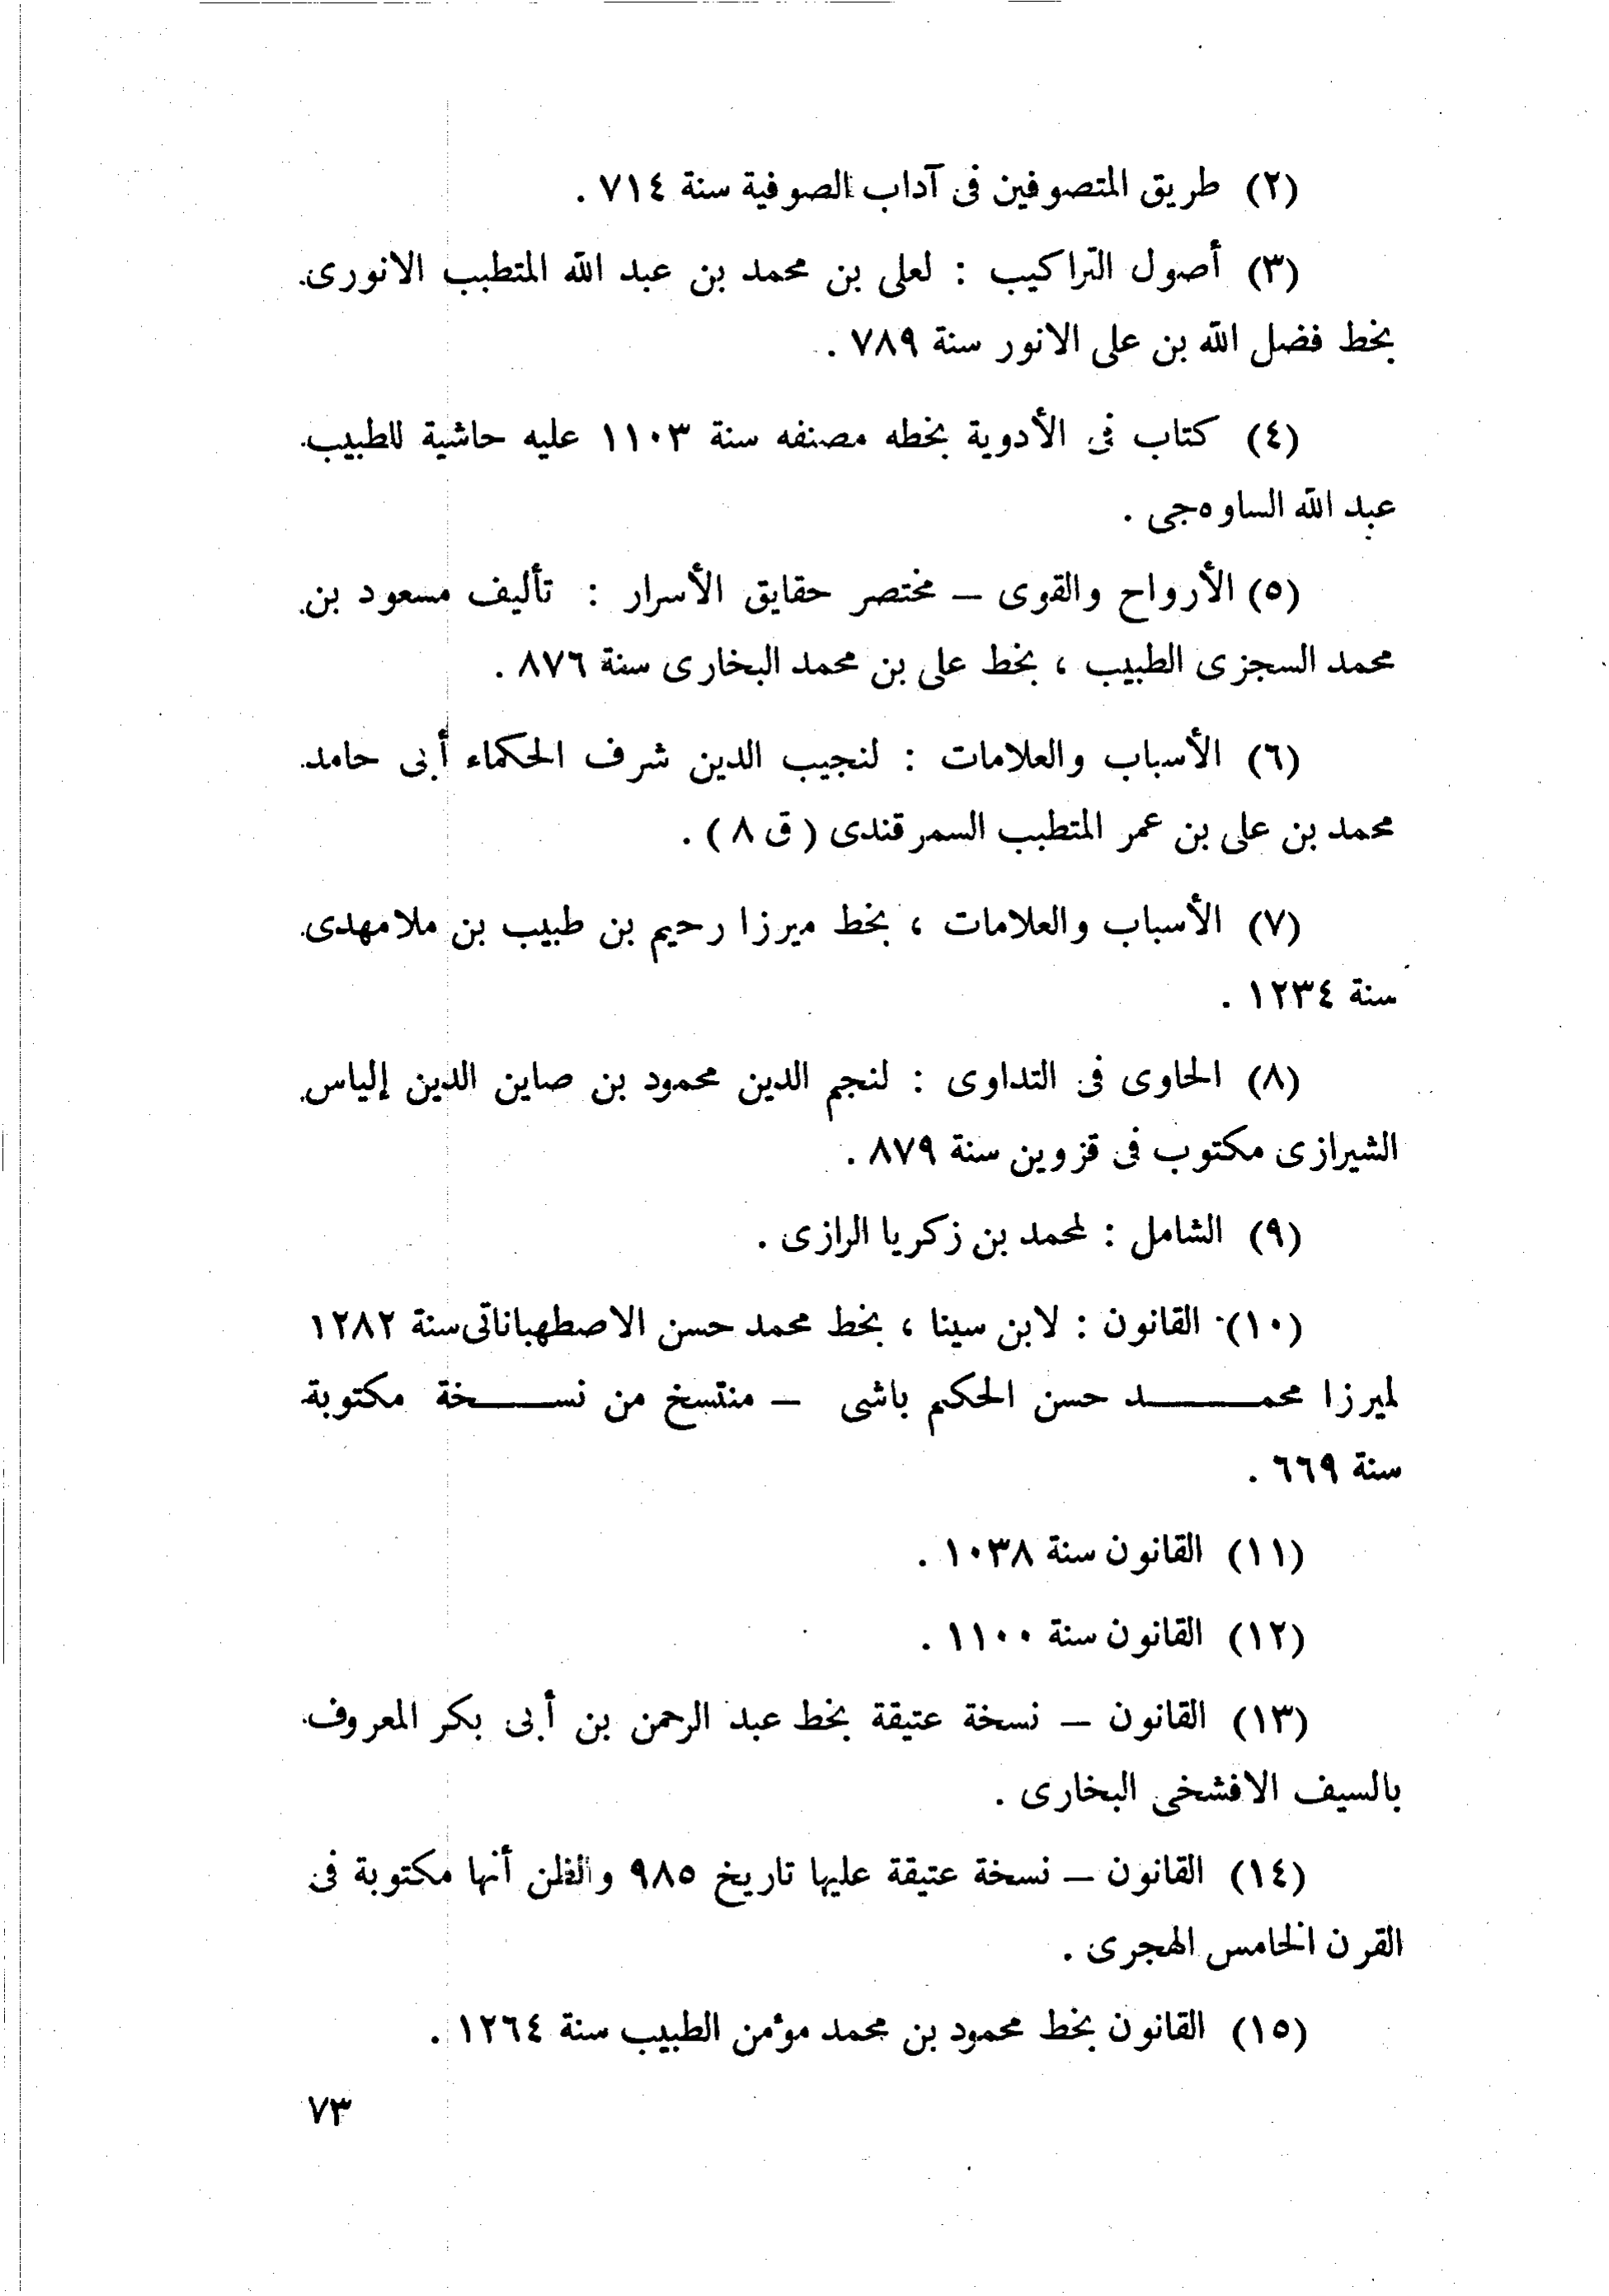 (٢) طريق المتصوفين فى آداب الصوفية سنة ٧١٤ .
(٣) أصول التراكيب : لعلى بن محمد بن عبد الله المتطبب الانورى
بخط فضل الله بن على الانور سنة ٧٨٩ .
(٤) كتاب فى الأدوية بخطه مصنفه سنة ١١٠٣ عليه حاشية للطبيب
عبد الله الساوه‌جى .
(٥) الأرواح والقوى – مختصر حقايق الأسرار : تأليف مسعود بن
محمد السجزى الطبيب ، بخط على بن محمد البخارى سنة ٨٧٦ .
(٦) الأسباب والعلامات : لنجيب الدين شرف الحكماء أبى حامد
محمد بن على بن عمر المتطبب السمرقندى ( ق ٨ ) .
(٧) الأسباب والعلامات ، بخط ميرزا رحيم بن طبيب بن ملامهدى
سنة ١٢٣٤ .
(٨) الحاوى فى التداوى : لنجم الدين محمود بن صاين الدين إلياس
الشيرازى مكتوب فى قزوين سنة ٨٧٩ .
(٩) الشامل : لمحمد بن زكريا الرازى .
(١٠) القانون : لابن سينا ، بخط محمد حسن الاصطهباناتى سنة ١٢٨٢
لميرزا محمـــــد حسن الحكيم باشى – منتسخ من نســـخة مكتوبة
سنة ٦٦٩ .
(١١) القانون سنة ١٠٣٨ .
(١٢) القانون سنة ١١٠٠ .
(١٣) القانون – نسخة عتيقة بخط عبد الرحمن بن أبى بكر المعروف
بالسيف الافشخى البخارى .
(١٤) القانون – نسخة عتيقة عليها تاريخ ٩٨٥ والظن أنها مكتوبة فى
القرن الخامس الهجرى .
(١٥) القانون بخط محمود بن محمد مؤمن الطبيب سنة ١٢٦٤ .
٧٣